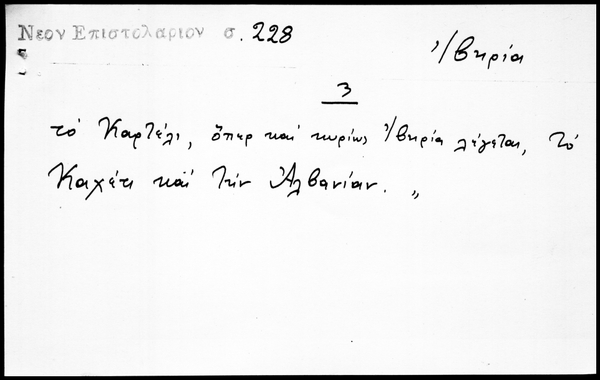 Νεον Επιστολαριον σ. 228
Ἰβηρία
3
τό Καρτέλι, ὅπερ καί κυρίως Ἰβηρία λέγεται, Τό
Καχέτι καί τήν Ἀλβανίαν. „